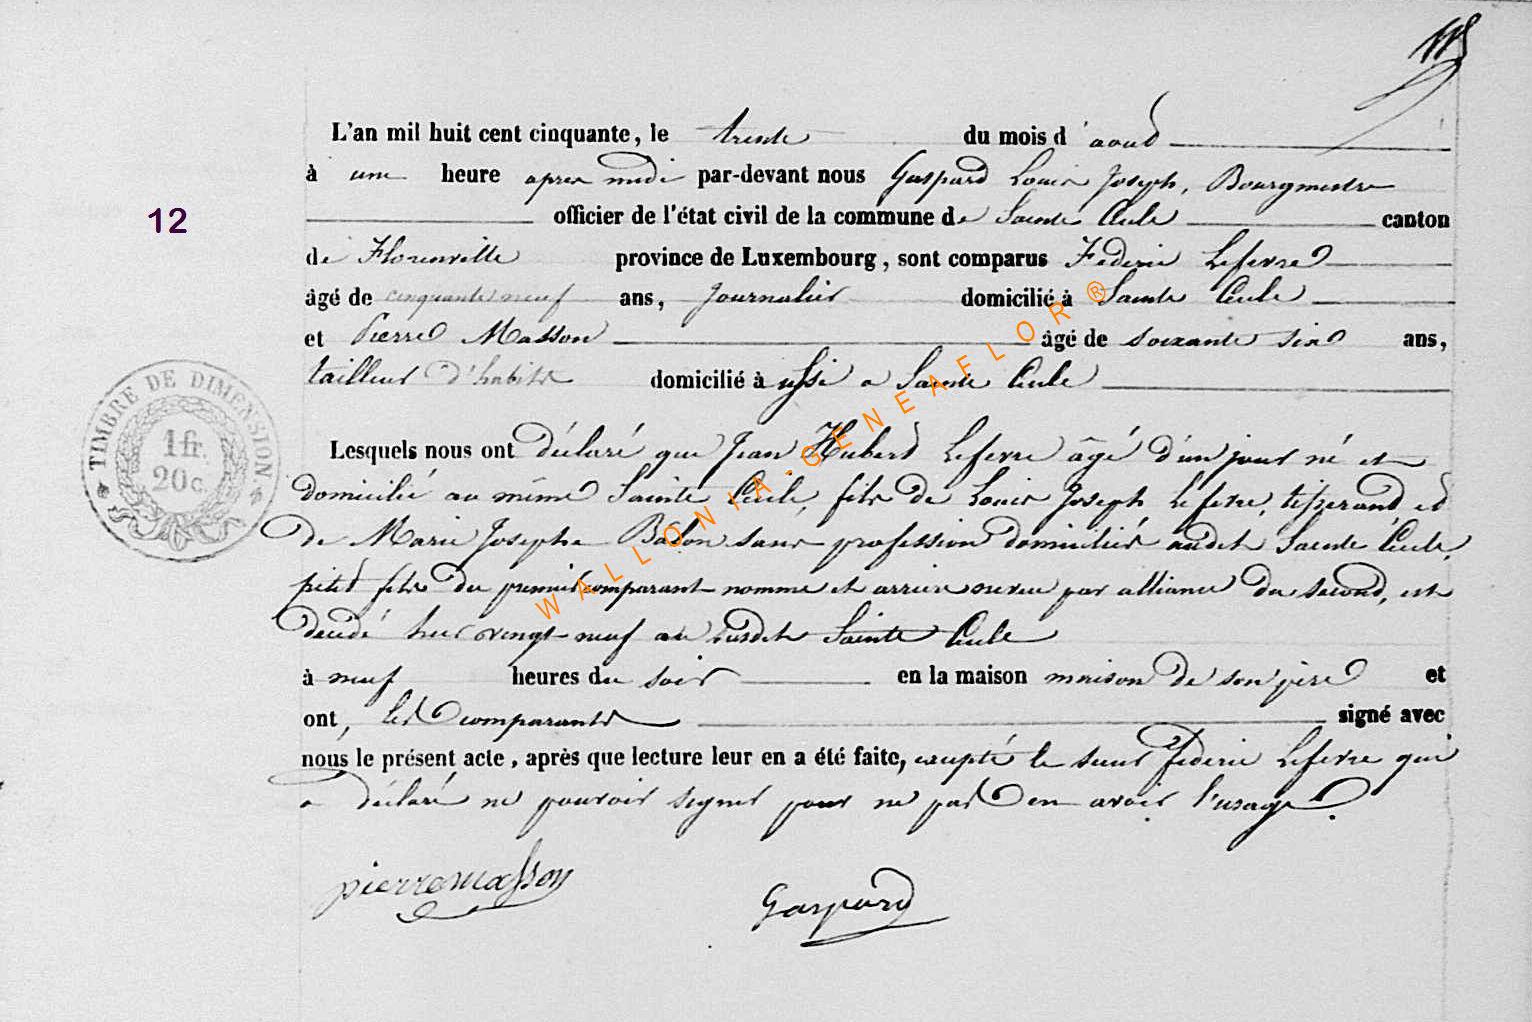 L'an mil huit cent cinquante, le trente du mois d'aoud
à une heure apres midi par-devant nous Gaspard Louis Joseph, Bourgmestre
officier de l'état civil de la commune de Sainte Cécile canton
de Florenville province de Luxembourg, sont comparus Féderic Lefevre
âgé de cinquante neuf ans, Journalier domicilié à Sainte Cécile
et Pierre Masson âgé de soixante six ans,
tailleur d'habits domicilié à ussi a Sainte Cécile
Lesquels nous ont déclaré que Jean Hubert Lefevre âgé d'un jour né et
domicilié au même Sainte Cécile, fils de Louis Joseph Lefevre, tisserand et
de Marie Josephe sans profession domiciliés audit Sainte Cécile,
petit fils du premier comparant nommé et arriere neveu par alliance du second, est
décédé hier vingt-neuf au susdit Sainte Cécile
à neuf heures du soir en la maison maison de son père et
ont, les comparants signé avec
nous le présent acte, après que lecture leur en a été faite, excepté le sieur Féderic Lefevre qui
a déclaré ne pouvoir signer pour ne pas en avoir l'usage.
pierre masson
Gaspard
12
TIMBRE DE DIMENSION
1 fr.
20 c.
WALLONIA-GENEAFLOR®